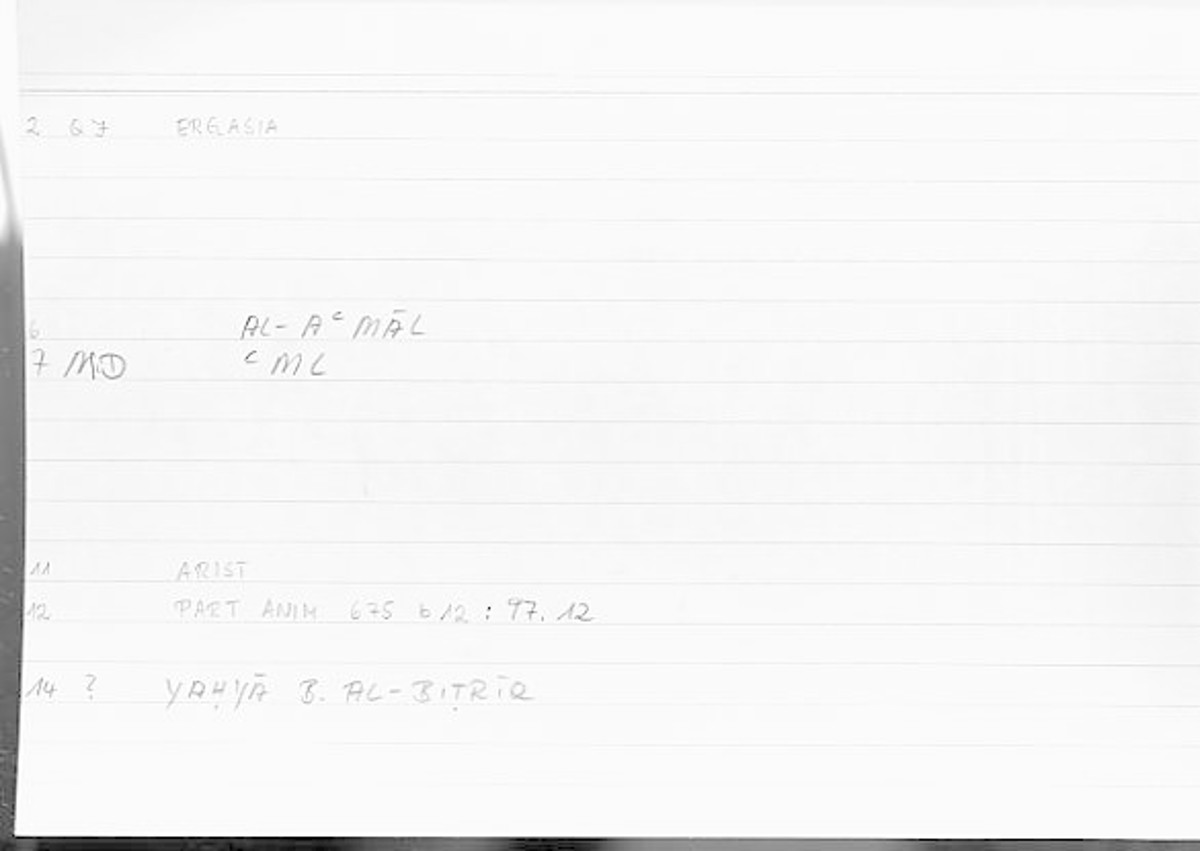 2 G7 ERGASIA
6 AL-AᶜMĀL
7 MD ᶜML
11 ARIST
12 PART ANIM 675 b 12 : 97. 12
14 ? YAḤYĀ B. AL-BIṬRĪQ